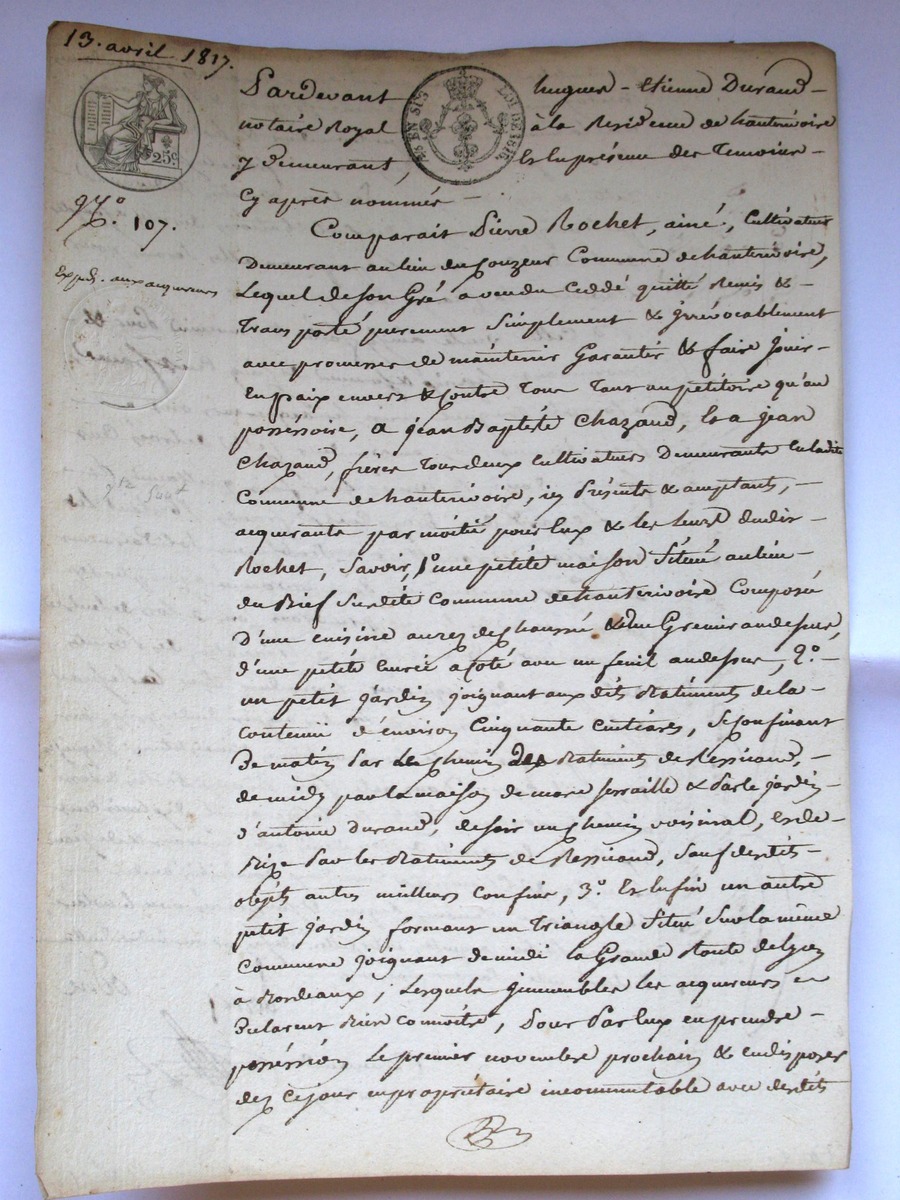 13. avril 1817.
25c
AS EN SUS LOI DE 1816
107.
Expéd. aux acquereurs
Pardevant hugues - Etienne Durand -
notaire Royal à la Residence de hauterivoire
y demeurant, Et En présence des Temoins -
Cy après nommés -
Comparait Pierre Rochet, ainé, Cultivateur
Demeurant au lieu du Couzeur Commune de hauterivoire,
Lequel de son Gré a vendu Ceddé quitté Remis & -
Transporté purement Simplement & irrévocablement
avec promesses de maintenir Garantir & faire jouir -
En paix envers & Contre Tous Tant au pétitoire qu'au
posséssoire, a jean Baptiste Chazaud, Et a jean
Chazaud, frères Tous deux Cultivateurs Demeurants En ladite
Commune de hauterivoire, ici Présents & acceptants, -
acquerants par moitié pour Eux & les leurs dudit -
Rochet, Savoir, 1° une petite maison Situé au lieu -
du Rief Surdite Commune de hauterivoire Composé
D'une cuisine au rez de Chaussé & un Grenier au dessus,
d'une petite Ecurie a Coté avec un fenil au dessus, 2°. -
un petit jardin joignant aux dits Batiments de la -
Contenue d'environ Cinquante Centiares, Se Confinant
De matin Par le Chemin des Batiments de Ressicaud, -
de midi par la maison de marie Serraille & Par le jardin
d'antoine Durand, de soir un Chemin voisinal, Et de
Bize Par les Batiments de Ressicaud, Sauf desdits -
objets autres meilleurs Confins, 3°. Et Enfin un autre
petit jardin formant un Triangle Situé Sur la même
Commune joignant de midi la Grande Route de Lyon
à Bordeaux; Lesquels immeubles les acquereurs ont
Déclarent Bien Connoitre, Pour Par Eux en prendre -
posséssion Le premier novembre prochain & en disposer
des Ce jour en propriétaire incommutable avec desdits